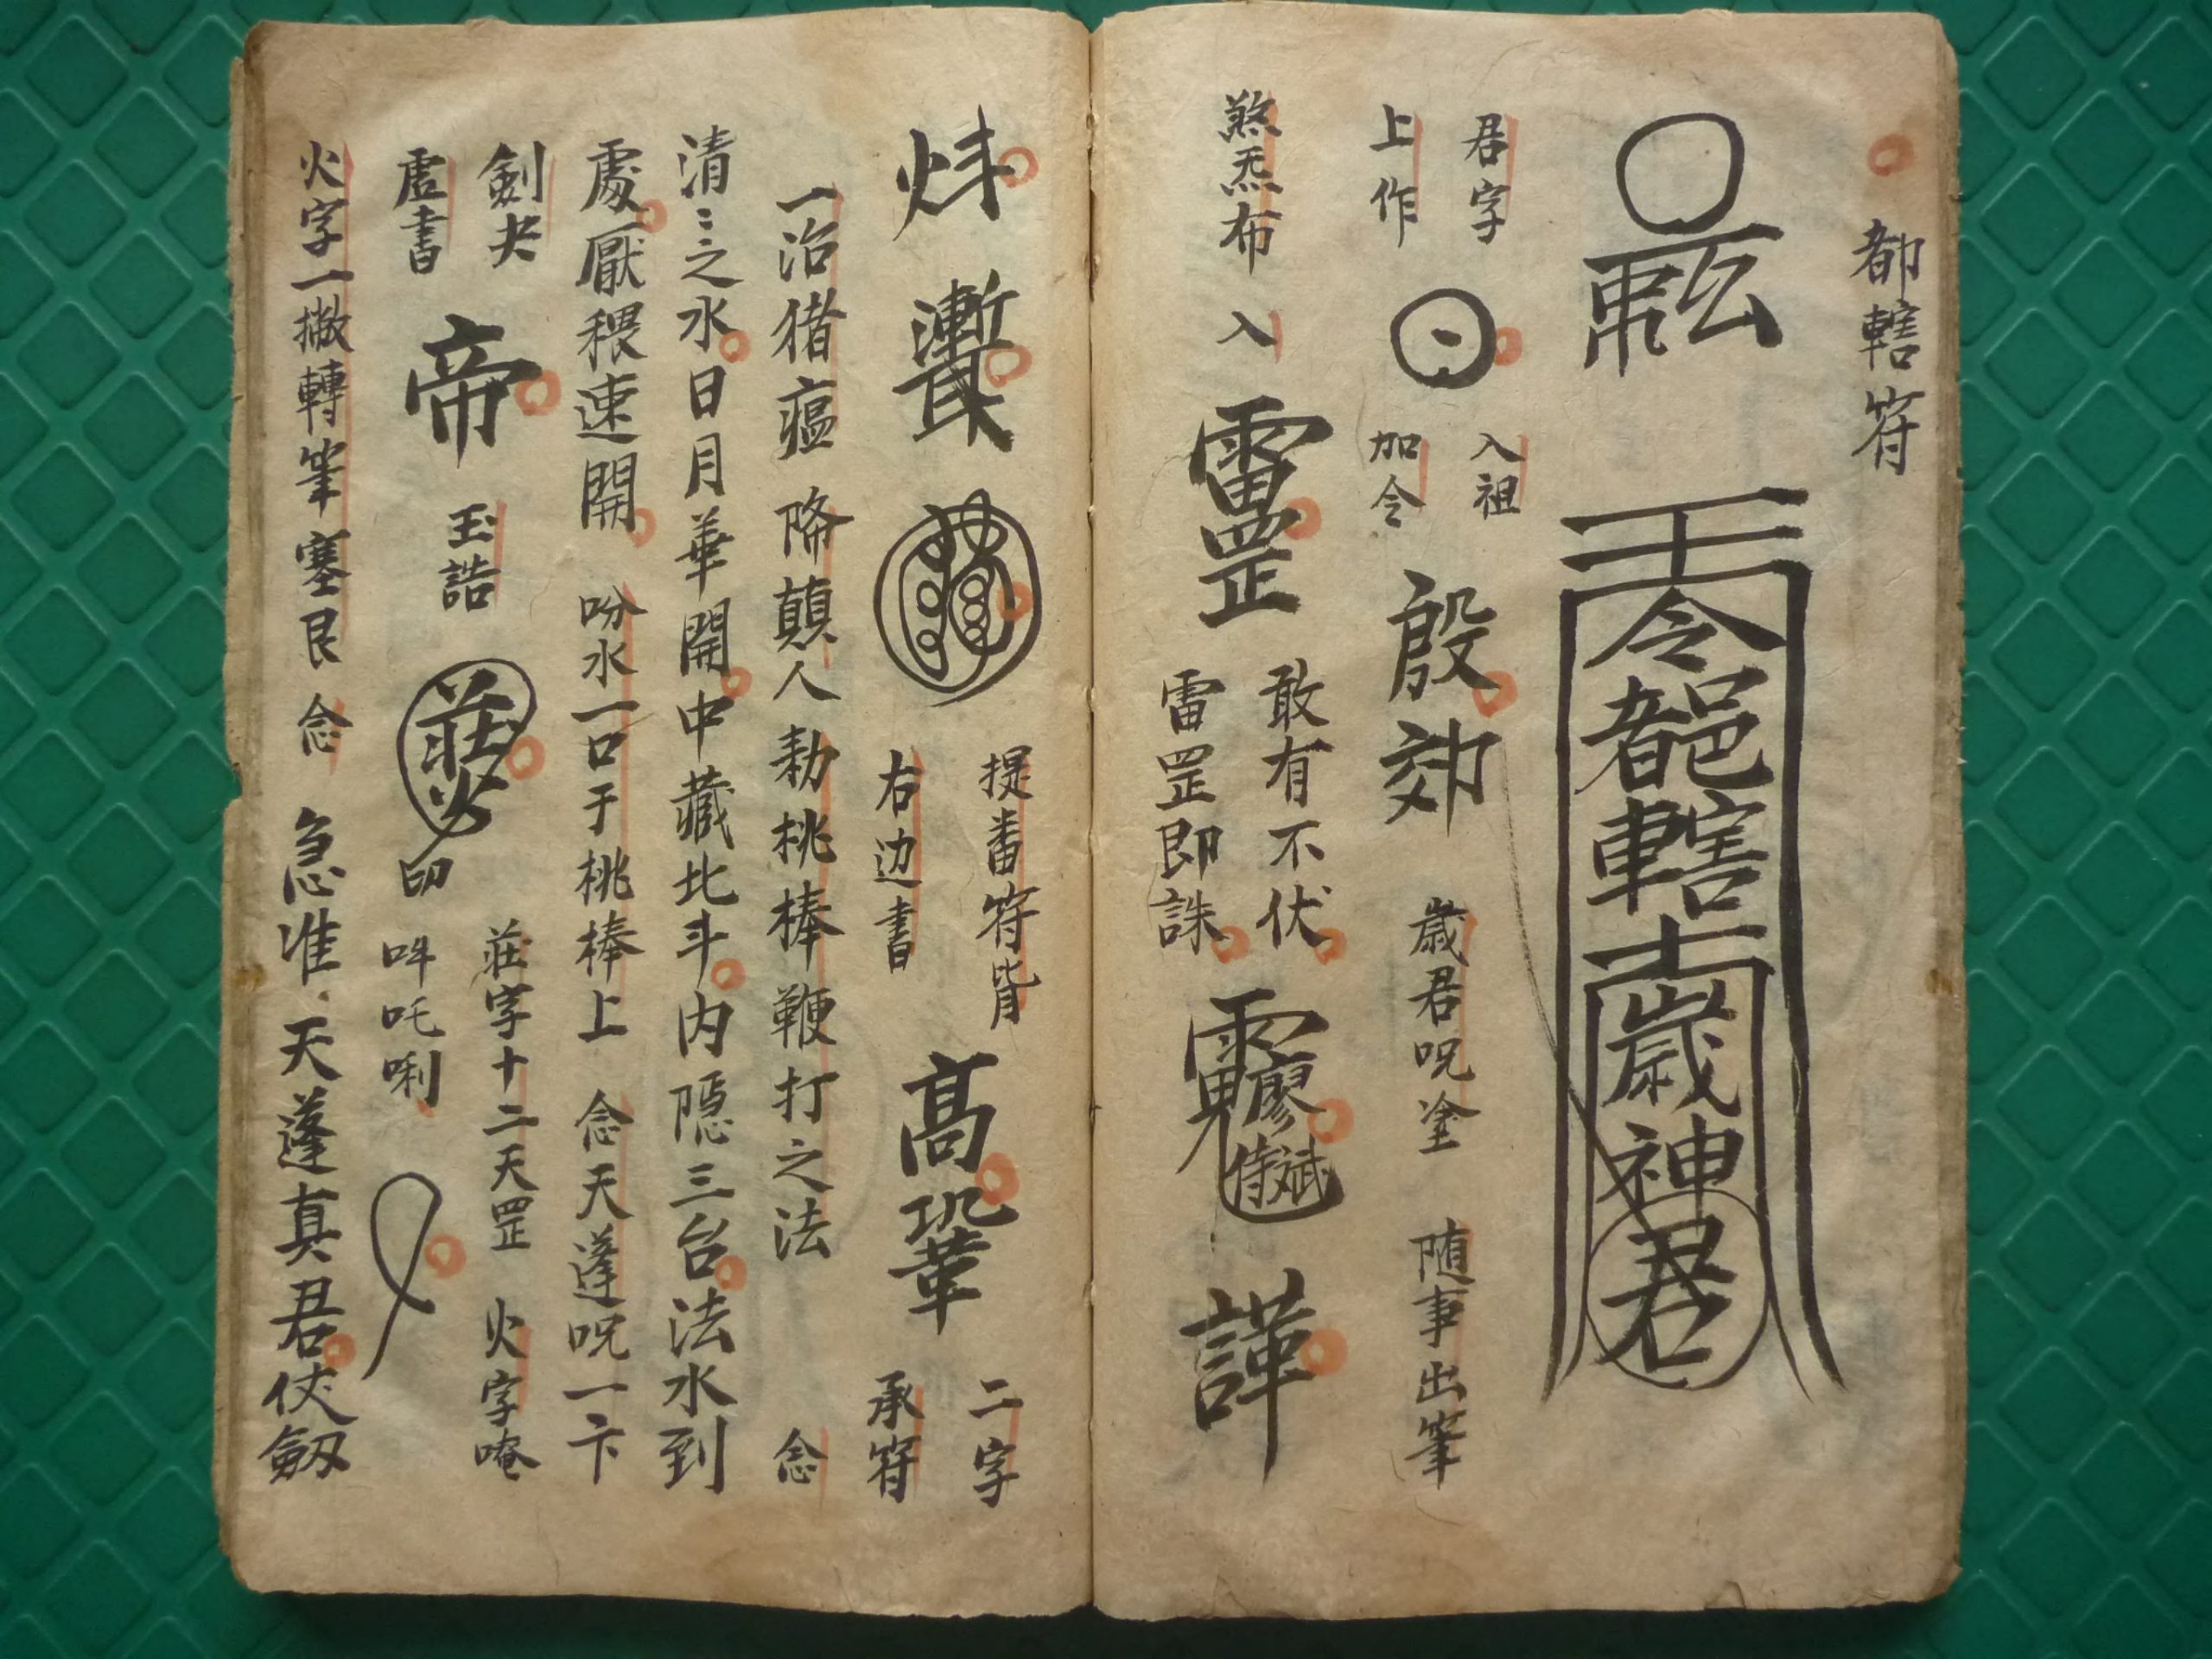 都轄符
令都轄
歲神君
君字
上作
入祖
加令
殷郊
歲君呪塗
随事出筆
煞炁布入
雷罡
敢有不伏
雷罡即誅
提番符背
右边書
高
二字
承符
一治猪瘟降顛人勑桃棒鞭打之法 念
清〻之水日月華開中藏北斗内隱三台法水到
處厭穢速開 吩水一口于桃棒上 念天蓬呪一卞
劍夬
虛書
帝
玉誥
莊火
印
莊字十二天罡
火字唵
吽吒唎
火字一撇轉筆塞艮 念 急准天蓬真君仗劔